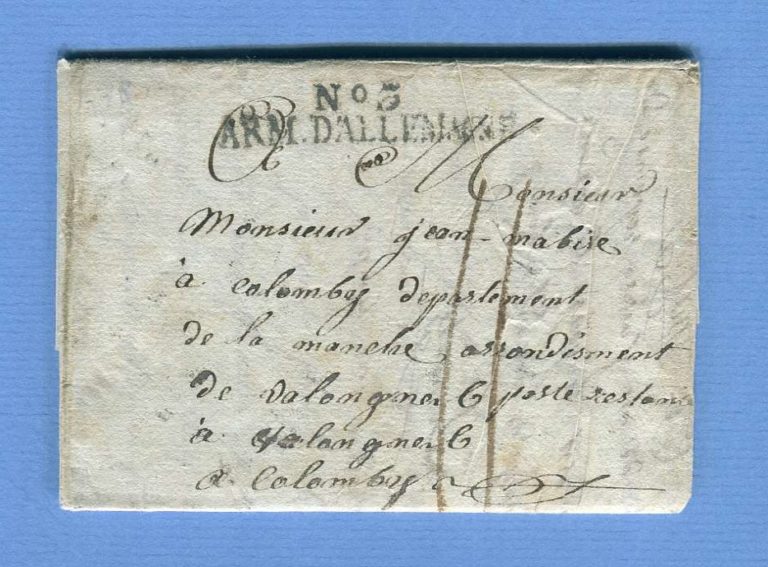 No 5
ARM. D'ALLEMAGNE
A Monsieur
Monsieur jean mabire
à colomby departement
de la manche arrondisment
de valongne poste restan
à valongne
a Colomby